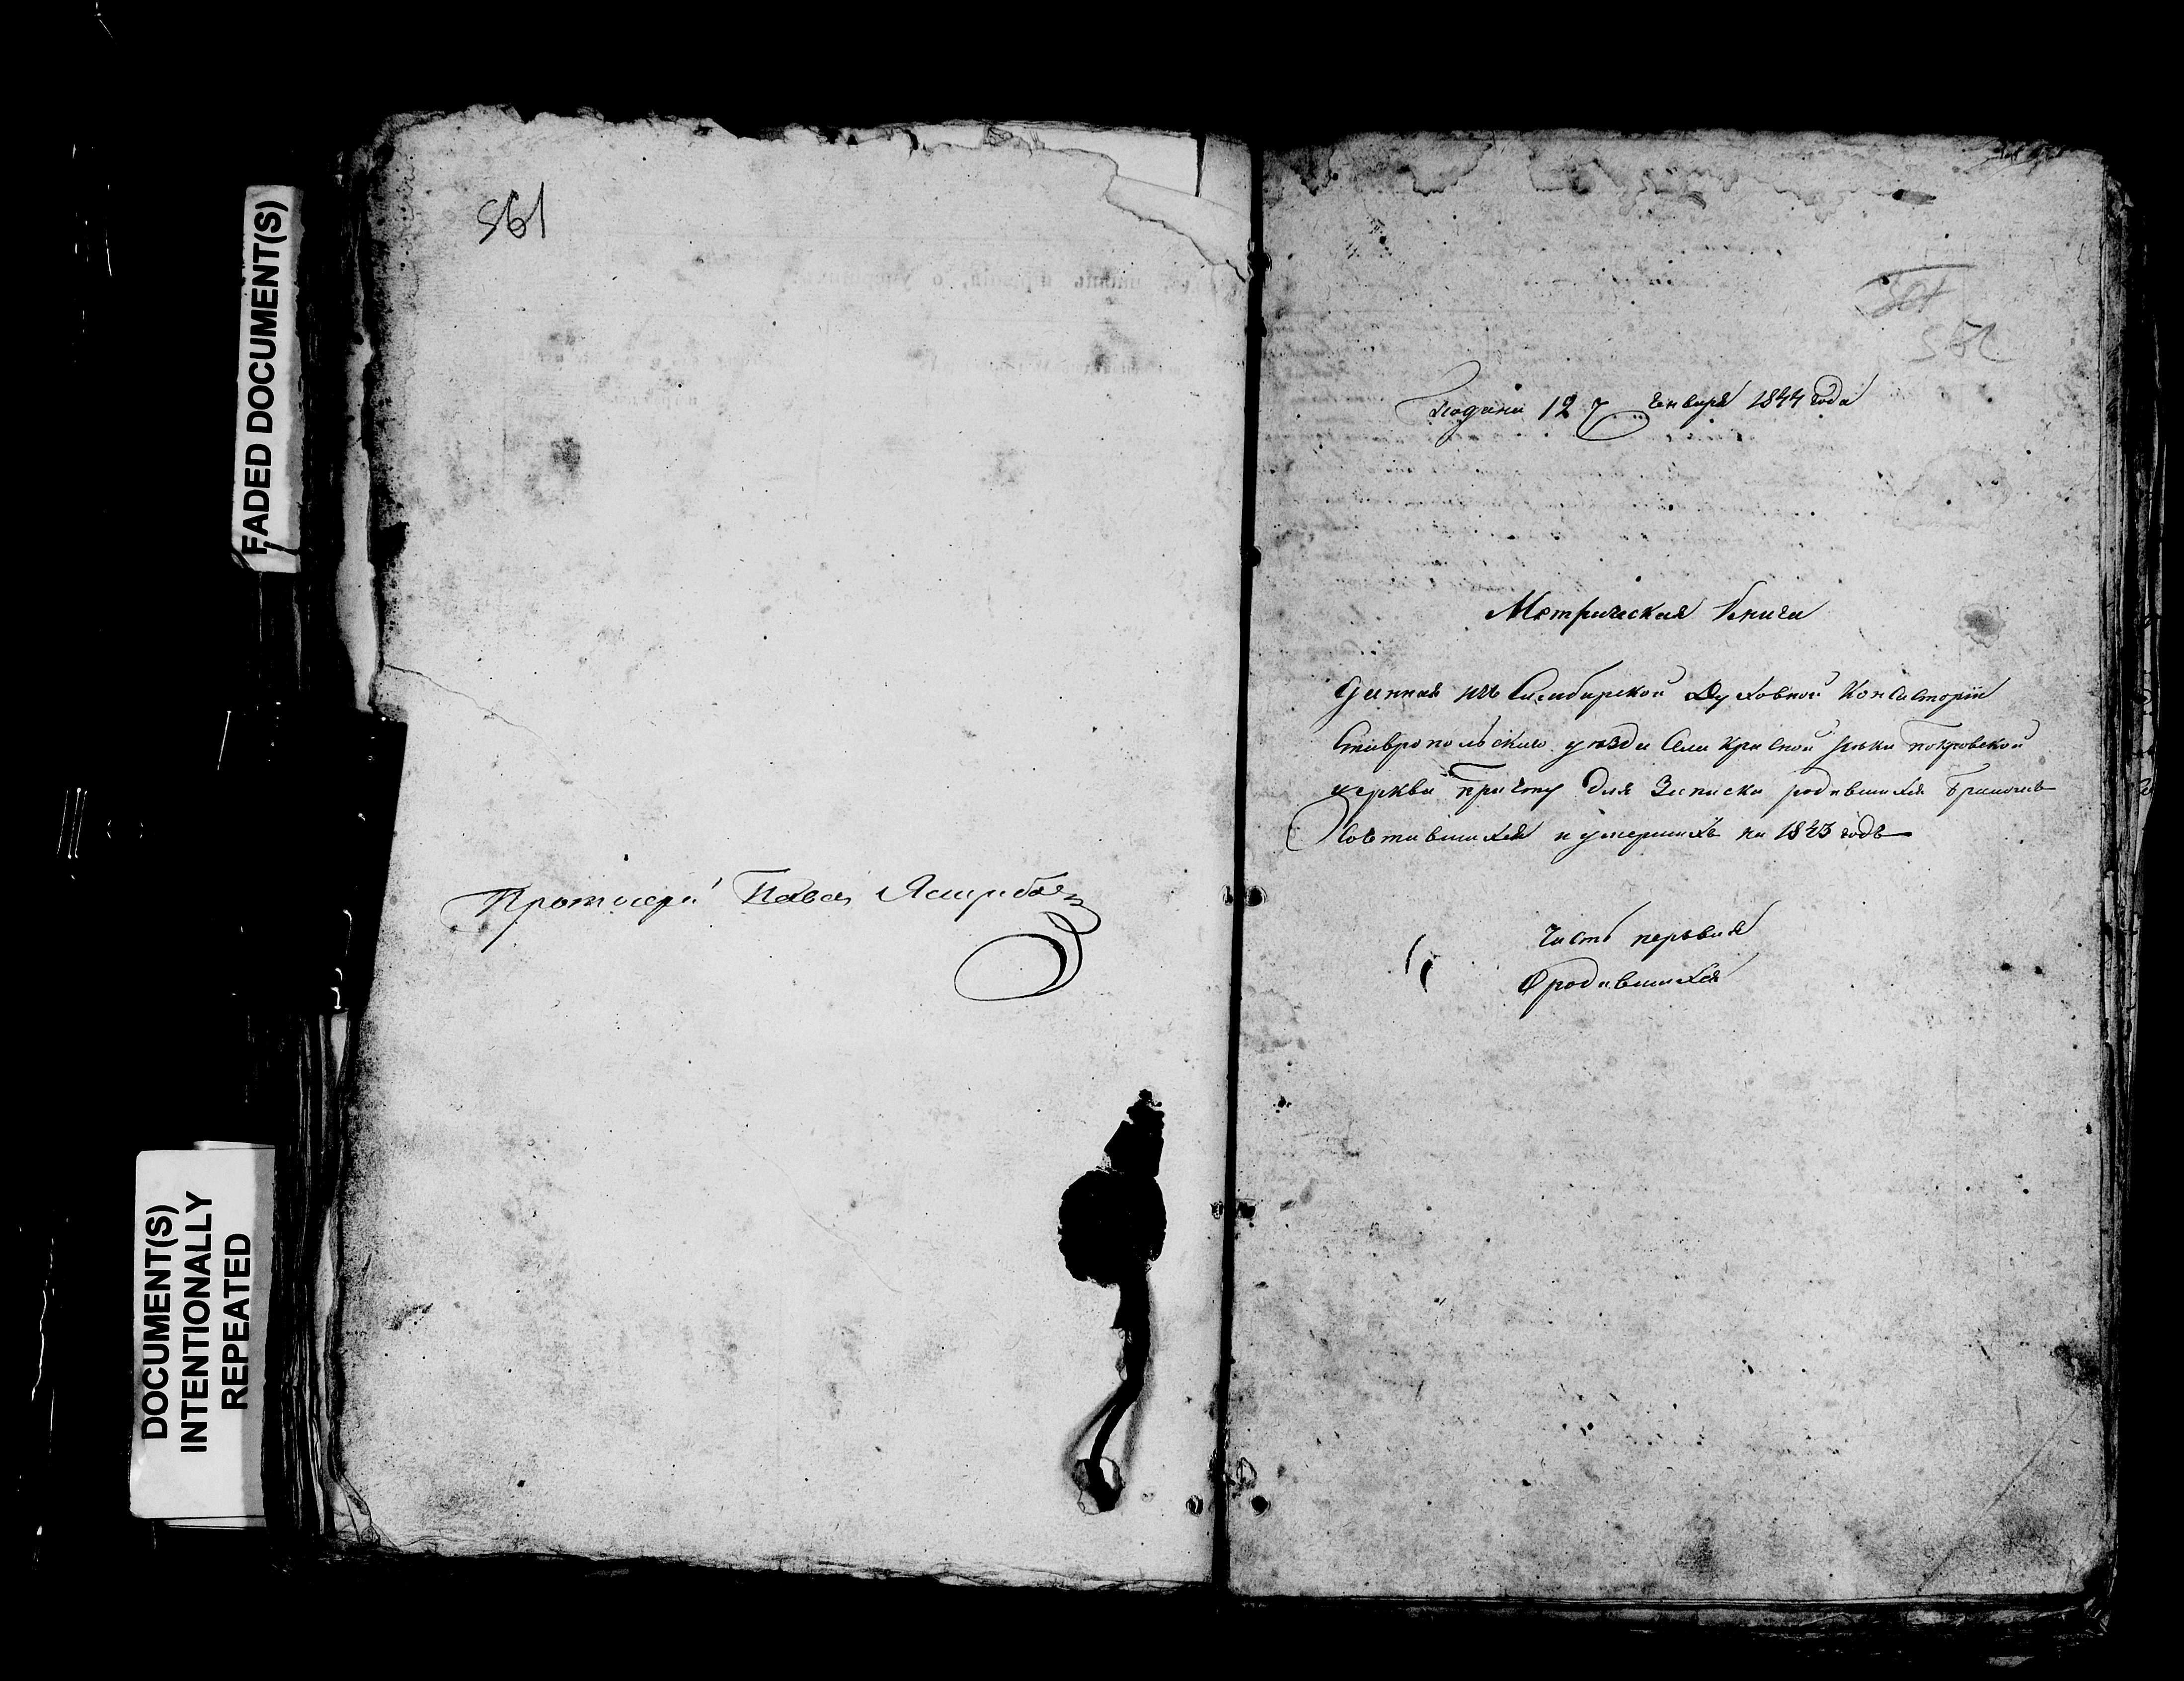 FADED DOCUMENT(S)
DOCUMENT(S)
INTENTIONALLY
REPEATED
561
Протоиерей Павел
562
Подана 12 Генваря 1844 года
Метрическая Книга
Данная изъ Симбирской Духовной Консисторіи
Ставропольскаго уезда Села Красной реки покровской
церкви причту для Записки родившихся Бракомъ
Сочетавшихся и умершихъ на 1843 годъ
Часть первая
О родившихся